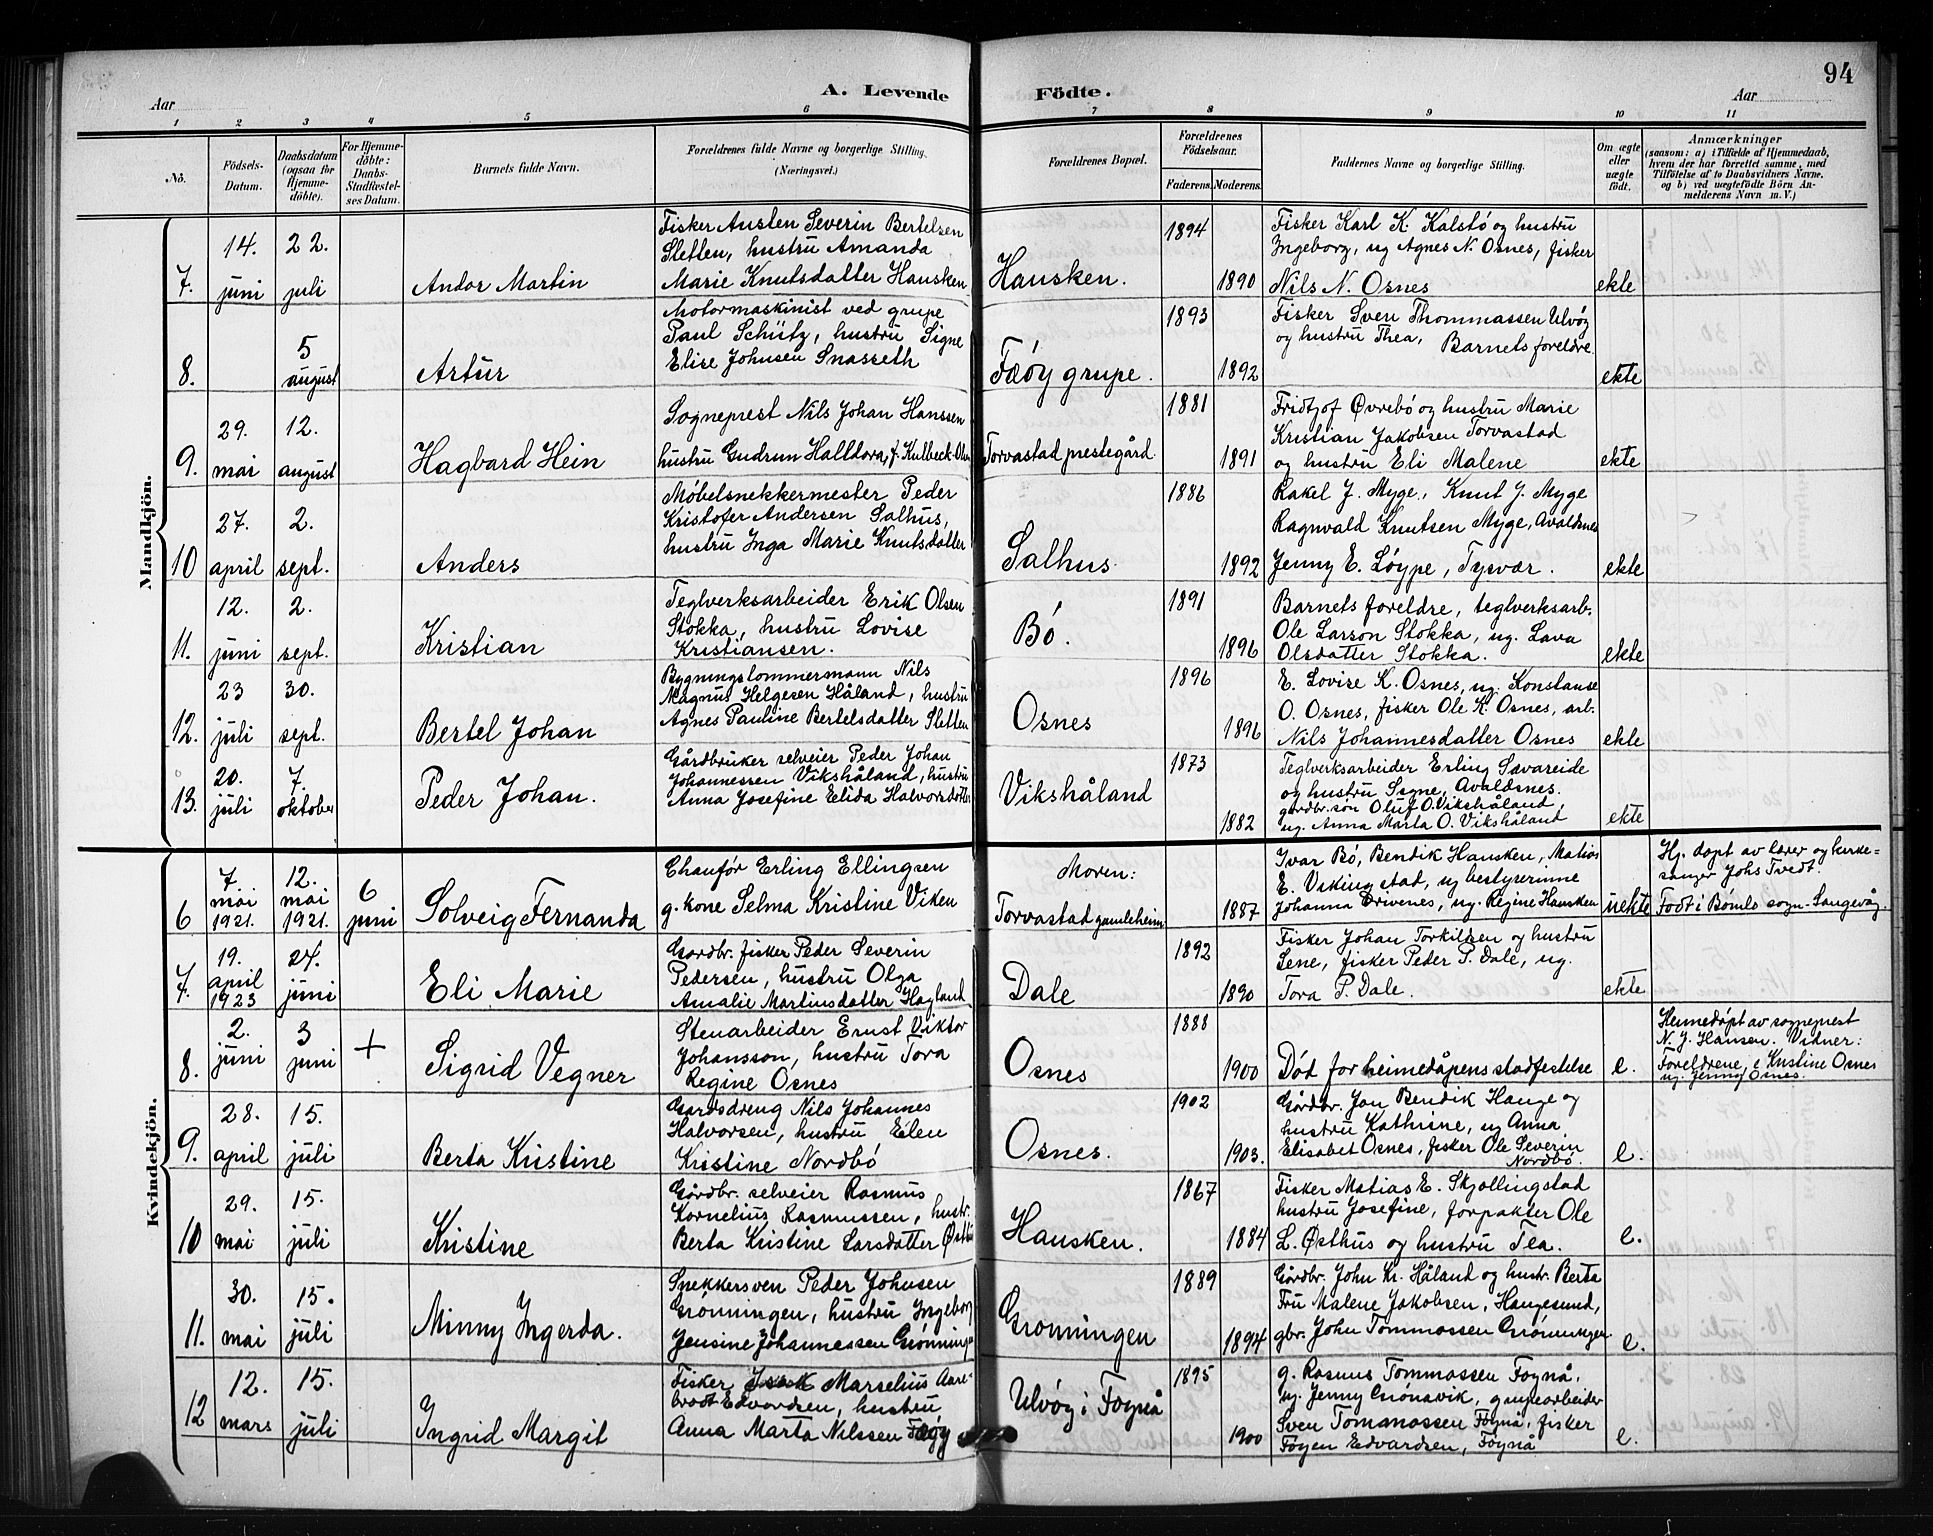 94
A. Levende Födte.
Aar
Aar
1 2 3 4 5 6 7 8 9 10 11
No.
Födsels-Datum.
Daabsdatum (ogsaa for Hjemmedøbte).
For Hjemmedøbte: Daabs-Stadfæstelses Datum.
Barnets fulde Navn.
Forældrenes fulde Navne og borgerlige Stilling. (Næringsvei.)
Forældrenes Bopæl.
Forældrenes Födselsaar.
Faderens. Moderens.
Faddernes Navne og borgerlige Stilling.
Om ægte eller uægte født.
Anmærkninger
(saasom: a) i Tilfælde af Hjemmedaab, hvem der har forrettet samme, med Tilföielse af to Daabsvidners Navne. og b) ved uægtefödte Börn Anmelderens Navn m. V.)
Mandkjön.
7. 14. juni
22 juli
Andor Martin
Fisker Austen Severin Bertelsen
Sletten, hustru Amanda
Marie Knutsdatter Hausken
Hausken.
1894
1890
Fisker Karl K. Kalstø og hustru
Ingeborg, ug Agnes N. Osnes, fisker
Nils N. Osnes
ekte
8.
5 august
Artur
Motormaskinist ved grupe
Paul Schütz, hustru Signe
Elise Johnsen Snasseth
Fæøy grupe.
1893
1892
Fisker Sven Thommassen Ulvøy
og hustru Thea, Barnets foreldre.
ekte
9. 29. mai
12. august
Hagbard Hein
Sogneprest Nils Johan Hanssen
hustru Gudrun Halldora, f. Kulbeck-Olsen
Torvastad prestegård.
1881
1891
Fridtjof Øvrebø og hustru Marie
Kristian Jakobsen Torvastad
og hustru Eli Malene
ekte
10 27. april
2. sept.
Anders
Møbelsnekkermester Peder
Kristofer Andersen Salhus,
hustru Inga Marie Knutsdatter
Salhus.
1886
1892
Rakel J. Myge, Knut J. Myge
Ragnvald Knutsen Myge, Avaldsnes
Jenny E. Løype, Tysvær.
ekte
11. 12. juni
2. sept.
Kristian
Teglverksarbeider Erik Olsen
Stokka, hustru Lovise
Kristiansen.
Bø.
1891
1896
Barnets foreldre, teglverksarb.
Ole Larson Stokka, ug. Lava
Olsdatter Stokka.
ekte
12. 23 juli
30. sept.
Bertel Johan
Bygningstømmermann Nils
Magnus Helgesen Håland, hustru
Agnes Pauline Bertelsdatter Sletten
Osnes
1896
1896
E. Lovise K. Osnes, ug. Konstanse
O. Osnes, fisker Ole K. Osnes, arb.
Nils Johannesdatter Osnes
ekte
13. 20. juli
7. oktober
Peder Johan.
Gårdbruker selveier Peder Johan
Johannessen Vikshåland, hustru
Anna Josefine Elida Halvorsdatter
Vikshåland
1873
1882
Teglverksarbeider Erling Sævareide
og hustru Signe, Avaldsnes.
gårdbr. søn Oluf O. Vikshåland,
ug. Anna Marta O. Vikshåland
ekte
Kvindekjön.
6 7. mai 1921.
12. mai 1921.
6 juni
Solveig Fernanda
Chauffør Erling Ellingsen
g. kone Selma Kristine Viken
Moren:
Torvastad gamleheim
1887
Ivar Bø, Bendik Hausken, Matias
E. Vikingstad, ug bestyrerinne
Johanna Drivenes, ug. Regine Hausken
uekte
Hj. døpt av lærer og kirke=
sanger Johs Tvedt.
Født i Bømlo sogn - Langevåg.
7. 19. april 1923
24. juni
Eli Marie
Gardbr. fisker Peder Severin
Pedersen, hustru Olga
Amalie Martinsdatter Hagland
Dale
1892
1890
Fisker Johan Torkildsen og hustru
Lene, fisker Peder P. Dale, ug.
Tora P. Dale.
ekte
8. 2. juni
3 juni
+
Sigrid Vegner
Stenarbeider Ernst Viktor
Johansson, hustru Tora
Regine Osnes
Osnes
1888
1900
Død for heimedåpens stadfestelse
e.
Heimedøpt av sogneprest
N. J. Hansen. Vidner:
Foreldrene, e Kristine Osnes
ug. Jenny Osnes.
9. 28. april
15. juli
Berta Kristine
Gardsdreng Nils Johannes
Halvorsen, hustru Elen
Kristine Nordbø
Osnes.
1902
1903.
Gårdbr. Jon Bendik Hauge og
hustru Kathrine, ug Anna
Elisabet Osnes, fisker Ole Severin
Nordbø.
e.
10 29. mai
15. juli
Kristine
Gårdbr. selveier Rasmus
Kornelius Rasmussen, hustr.
Berta Kristine Larsdatter Østhus
Hausken.
1867
1884
Fisker Matias E. Skjollingstad
hustru Josefine, forpakter Ole
L. Østhus og hustru Tea.
e.
11. 30. mai
15. juli
Minny Ingerda.
Snekkersven Peder Johnsen
Grønningen, hustru Ingeborg
Jensine Johannessen Grønningen
Grønningen
1889
1894
Gårdbr. John Kr. Håland og hustr. Berta
Fru Malene Jakobsen, Haugesund,
gbr. John Tommassen Grønningen.
e.
12 12. mars
15. juli
Ingrid Margit
Fisker Isak Marselius Aare-
brodt Edvardsen, hustru
Anna Marta Nilssen Føyn
Ulvøy i Føynå
1895
1900
g. Rasmus Tommassen Føynå,
ug. Jenny Grønavik, grupearbeider
Sven Tomanassen Føynå, fisker
Føyen Edvardsen, Føynå
e.